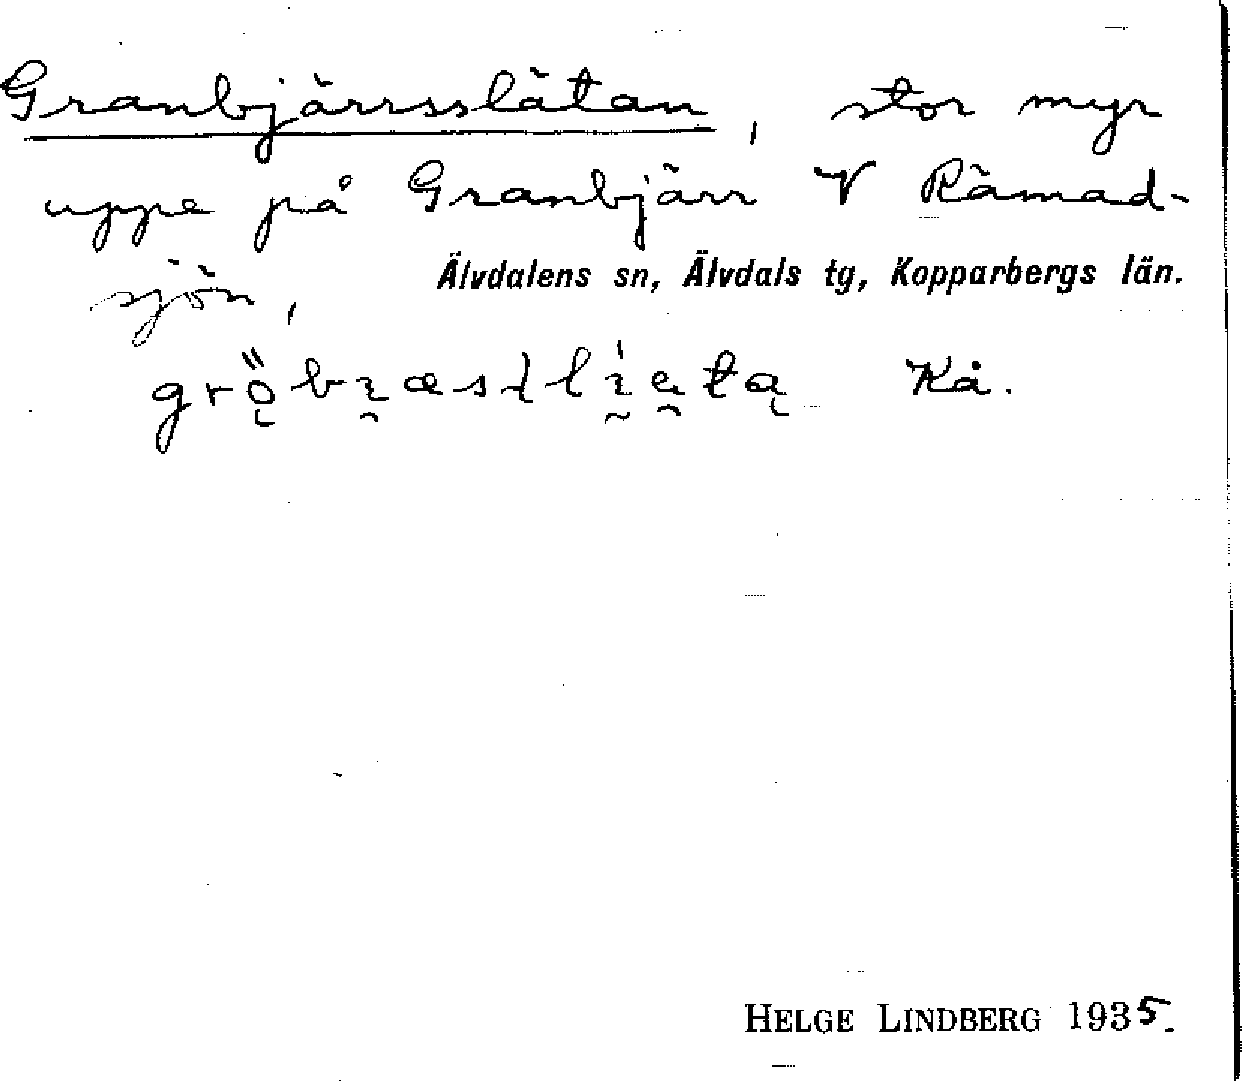 Granbjärrsslätan, stor myr
uppe på Granbjärr V Rämad-
sjön,
Älvdalens sn, Älvdals tg, Kopparbergs län.
Kå.
HELGE LINDBERG 1935.